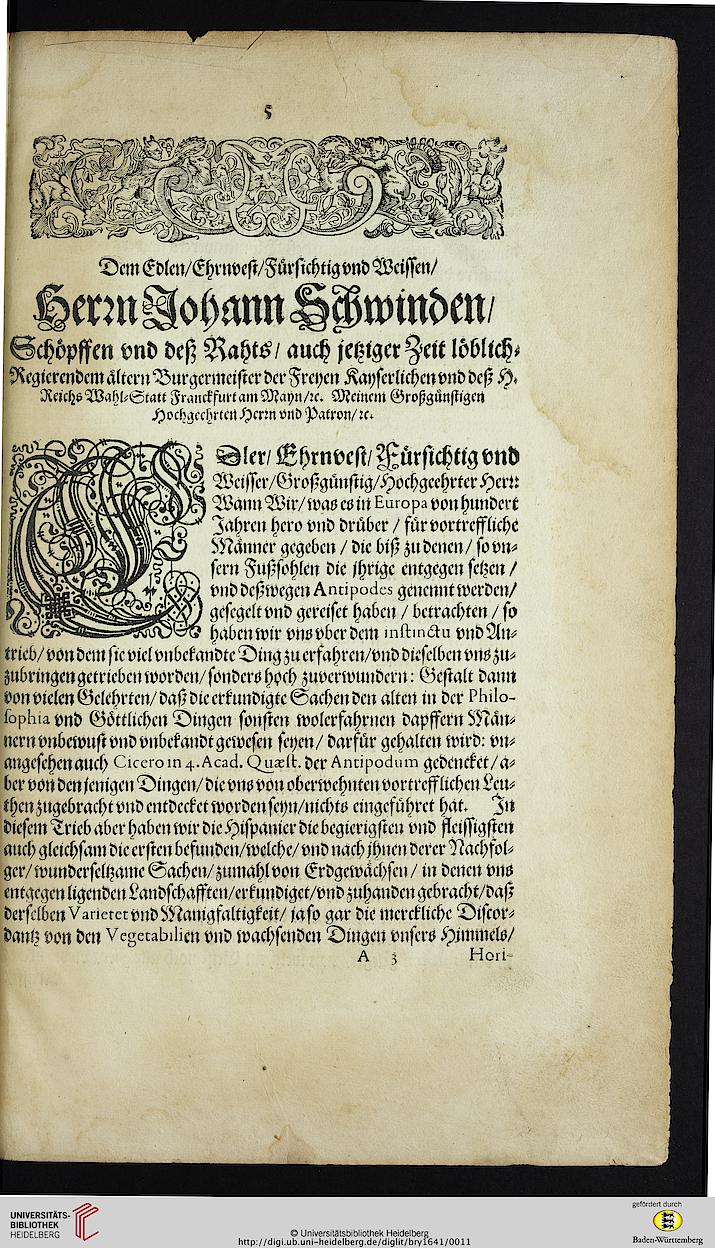 5
Dem Edlen/Ehrnvest/Fürsichtig vnd Weissen/
Herrn Johann Schwinden/
Schöpffen vnd deß Rahts/ auch jetziger Zeit löblich-
Regierendem ältern Burgermeister der Freyen Kayserlichen vnd deß H.
Reichs Wahl-Statt Franckfurt am Mayn/ꝛc. Meinem Großgünstigen
Hochgeehrten Herrn vnd Patron/ ꝛc.
EDler/ Ehrnvest/ Fürsichtig vnd
Weisser/Großgünstig/Hochgeehrter Herr:
Wann Wir/ was es in Europa von hundert
Jahren hero vnd drüber / für vortreffliche
Männer gegeben / die biß zu denen / so vn-
sern Fußsohlen die jhrige entgegen setzen /
vnd deßwegen Antipodes genennt werden/
gesegelt vnd gereiset haben / betrachten / so
haben wir vns vber dem instinctu vnd An-
trieb/ von dem sie viel vnbekandte Ding zu erfahren/vnd dieselben vns zu-
zubringen getrieben worden/ sonders hoch zuverwundern: Gestalt dann
von vielen Gelehrten/ daß die erkundigte Sachen den alten in der Philo-
sophia vnd Göttlichen Dingen sonsten wolerfahrnen dapffern Män-
nern vnbewust vnd vnbekandt gewesen seyen / darfür gehalten wird: vn-
angesehen auch Cicero in 4. Acad. Quæst. der Antipodum gedencket/ a-
ber von den jenigen Dingen/ die vns von oberwehnten vortrefflichen Leu-
then zugebracht vnd entdecket worden seyn/nichts eingeführet hat. In
diesem Trieb aber haben wir die Hispanier die begierigsten vnd fleissigsten
auch gleichsam die ersten befunden/welche/ vnd nach jhnen derer Nachfol-
ger/ wunderseltzame Sachen/ zumahl von Erdgewächsen / in denen vns
entgegen ligenden Landschafften/erkundiget/vnd zuhanden gebracht/daß
derselben Varietet vnd Manigfaltigkeit/ ja so gar die merckliche Discor-
dantz von den Vegetabilien vnd wachsenden Dingen vnsers Himmels/
A 3 Hori-
UNIVERSITÄTS-
BIBLIOTHEK
HEIDELBERG
© Universitätsbibliothek Heidelberg
http://digi.ub.uni-heidelberg.de/diglit/bry1641/0011
gefördert durch
Baden-Württemberg